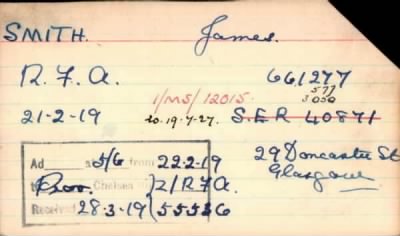 SMITH. James.
R.F.A. 661277
577
3050
1/MS/12015.
21-2-19 20.19.7.27. S.E.R 40871
Ad at 5/6 from 22-2-19 29 Doncaster St
Prov. Chelsea 2/RFA. Glasgow
Received 28.3-19 (55536